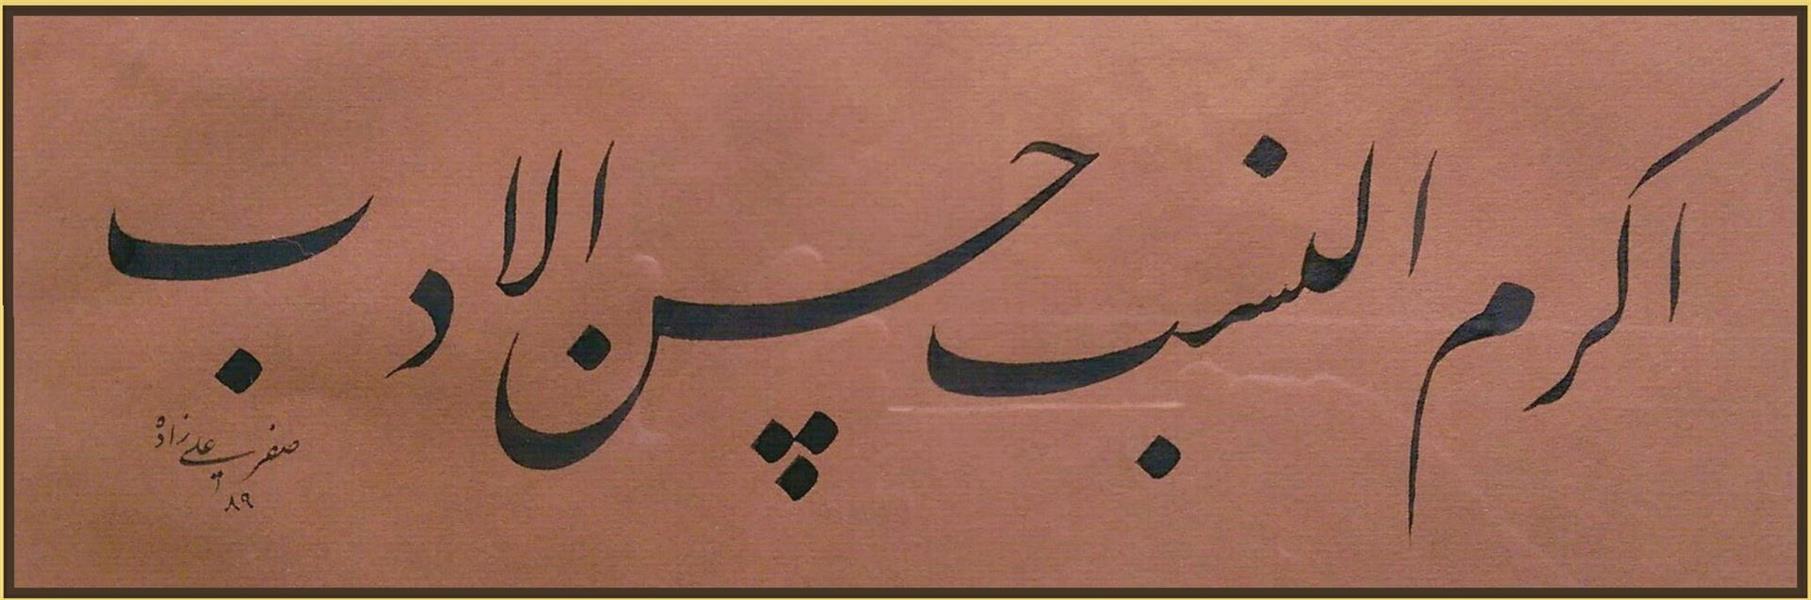 اکرم النسب حسن الادب
صفر علی زاده
۸۹